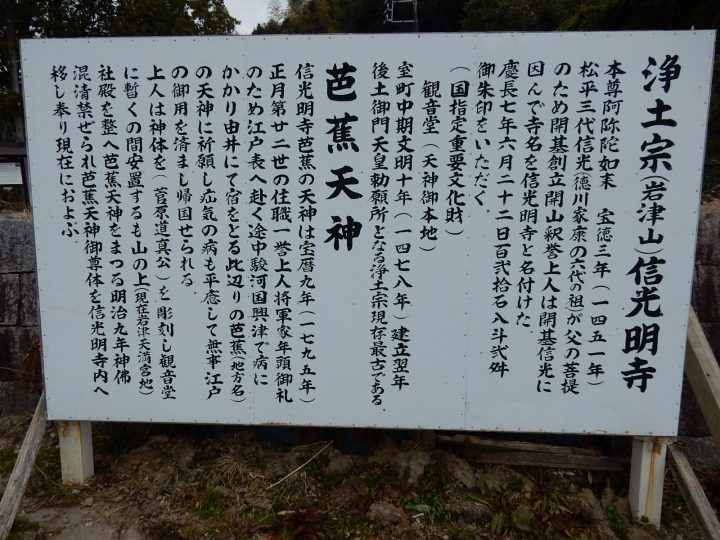 浄土宗(岩津山)信光明寺
本尊阿弥陀如来　宝徳三年(一四五一年)
松平三代信光(徳川家康の六代の祖)が父の菩提
のため開基創立開山釈誉上人は開基信光に
因んで寺名を信光明寺と名付けた
慶長七年六月二十二日百弐拾石八斗弐舛
御朱印をいただく。
(国指定重要文化財)
観音堂(天神御本地)
室町中期文明十年(一四七八年)建立翌年
後土御門天皇勅願所となる浄土宗現存最古である。
芭蕉天神
信光明寺芭蕉の天神は宝暦九年(一七九五年)
正月第廿二世の住職一誉上人将軍家年頭御礼
のため江戸表へ赴く途中駿河国興津で病に
かかり由井にて宿をとる此辺りの芭蕉(地方名)
の天神に祈願し疝気の病も平癒して無事江戸
の御用を済まし帰国せられる。
上人は神体を(菅原道真公)を彫刻し観音堂
に暫くの間安置するも山の上(現在岩津天満宮地)
社殿を整へ芭蕉天神をまつる明治九年神佛
混清禁せられ芭蕉天神御尊体を信光明寺内へ
移し奉り現在におよぶ。